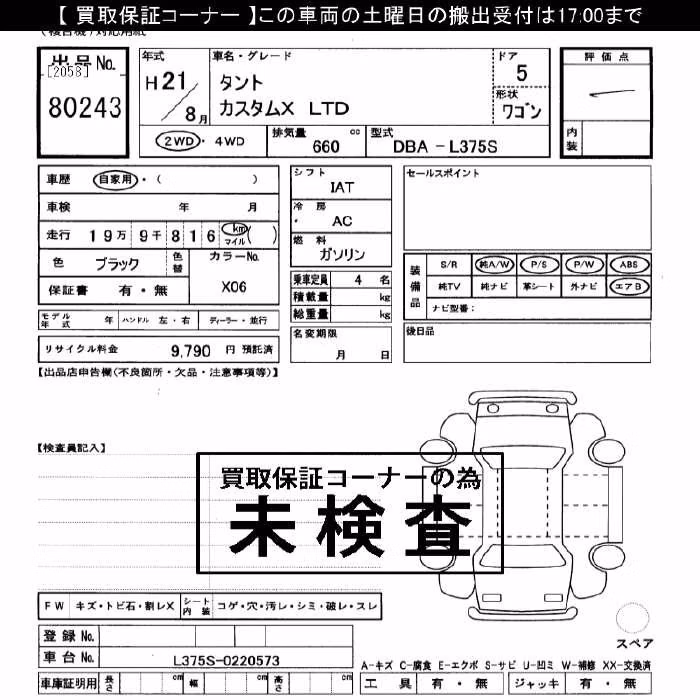 【 買取保証コーナー 】この車両の土曜日の搬出受付は17:00まで
出品No. [2058] 80243
年式 H21/8月
車名・グレード タント カスタムX LTD
ドア 5
形状 ワゴン
評価点
内装
2WD・4WD 排気量 660 cc 型式 DBA-L375S
車歴 自家用・( )
車検 年 月
走行 19万 9千 816 km マイル ( )
色 ブラック 色替 カラーNo. X06
保証書 有・無
シフト IAT
冷房 AC
燃料 ガソリン
乗車定員 4 名
積載量 kg
総重量 kg
セールスポイント
装備品 S/R 純A/W P/S P/W ABS
純TV 純ナビ 革シート 外ナビ エアB
ナビ型番:
モデル年式 年 ハンドル 左・右 ディーラー・並行
リサイクル料金 9,790 円 預託済
名変期限 月 日
後日品
【出品店申告欄(不良箇所・欠品・注意事項等)】
【検査員記入】
買取保証コーナーの為
未検査
FW キズ・トビ石・割レX シート内装 コゲ・穴・汚レ・シミ・破レ・スレ
登録No.
車台No. L375S-0220573
車庫証明用 長さ cm 幅 cm 高さ cm
スペア
A-キズ C-腐食 E-エクボ S-サビ U-凹ミ W-補修 XX-交換済
工具 有・無 ジャッキ 有・無